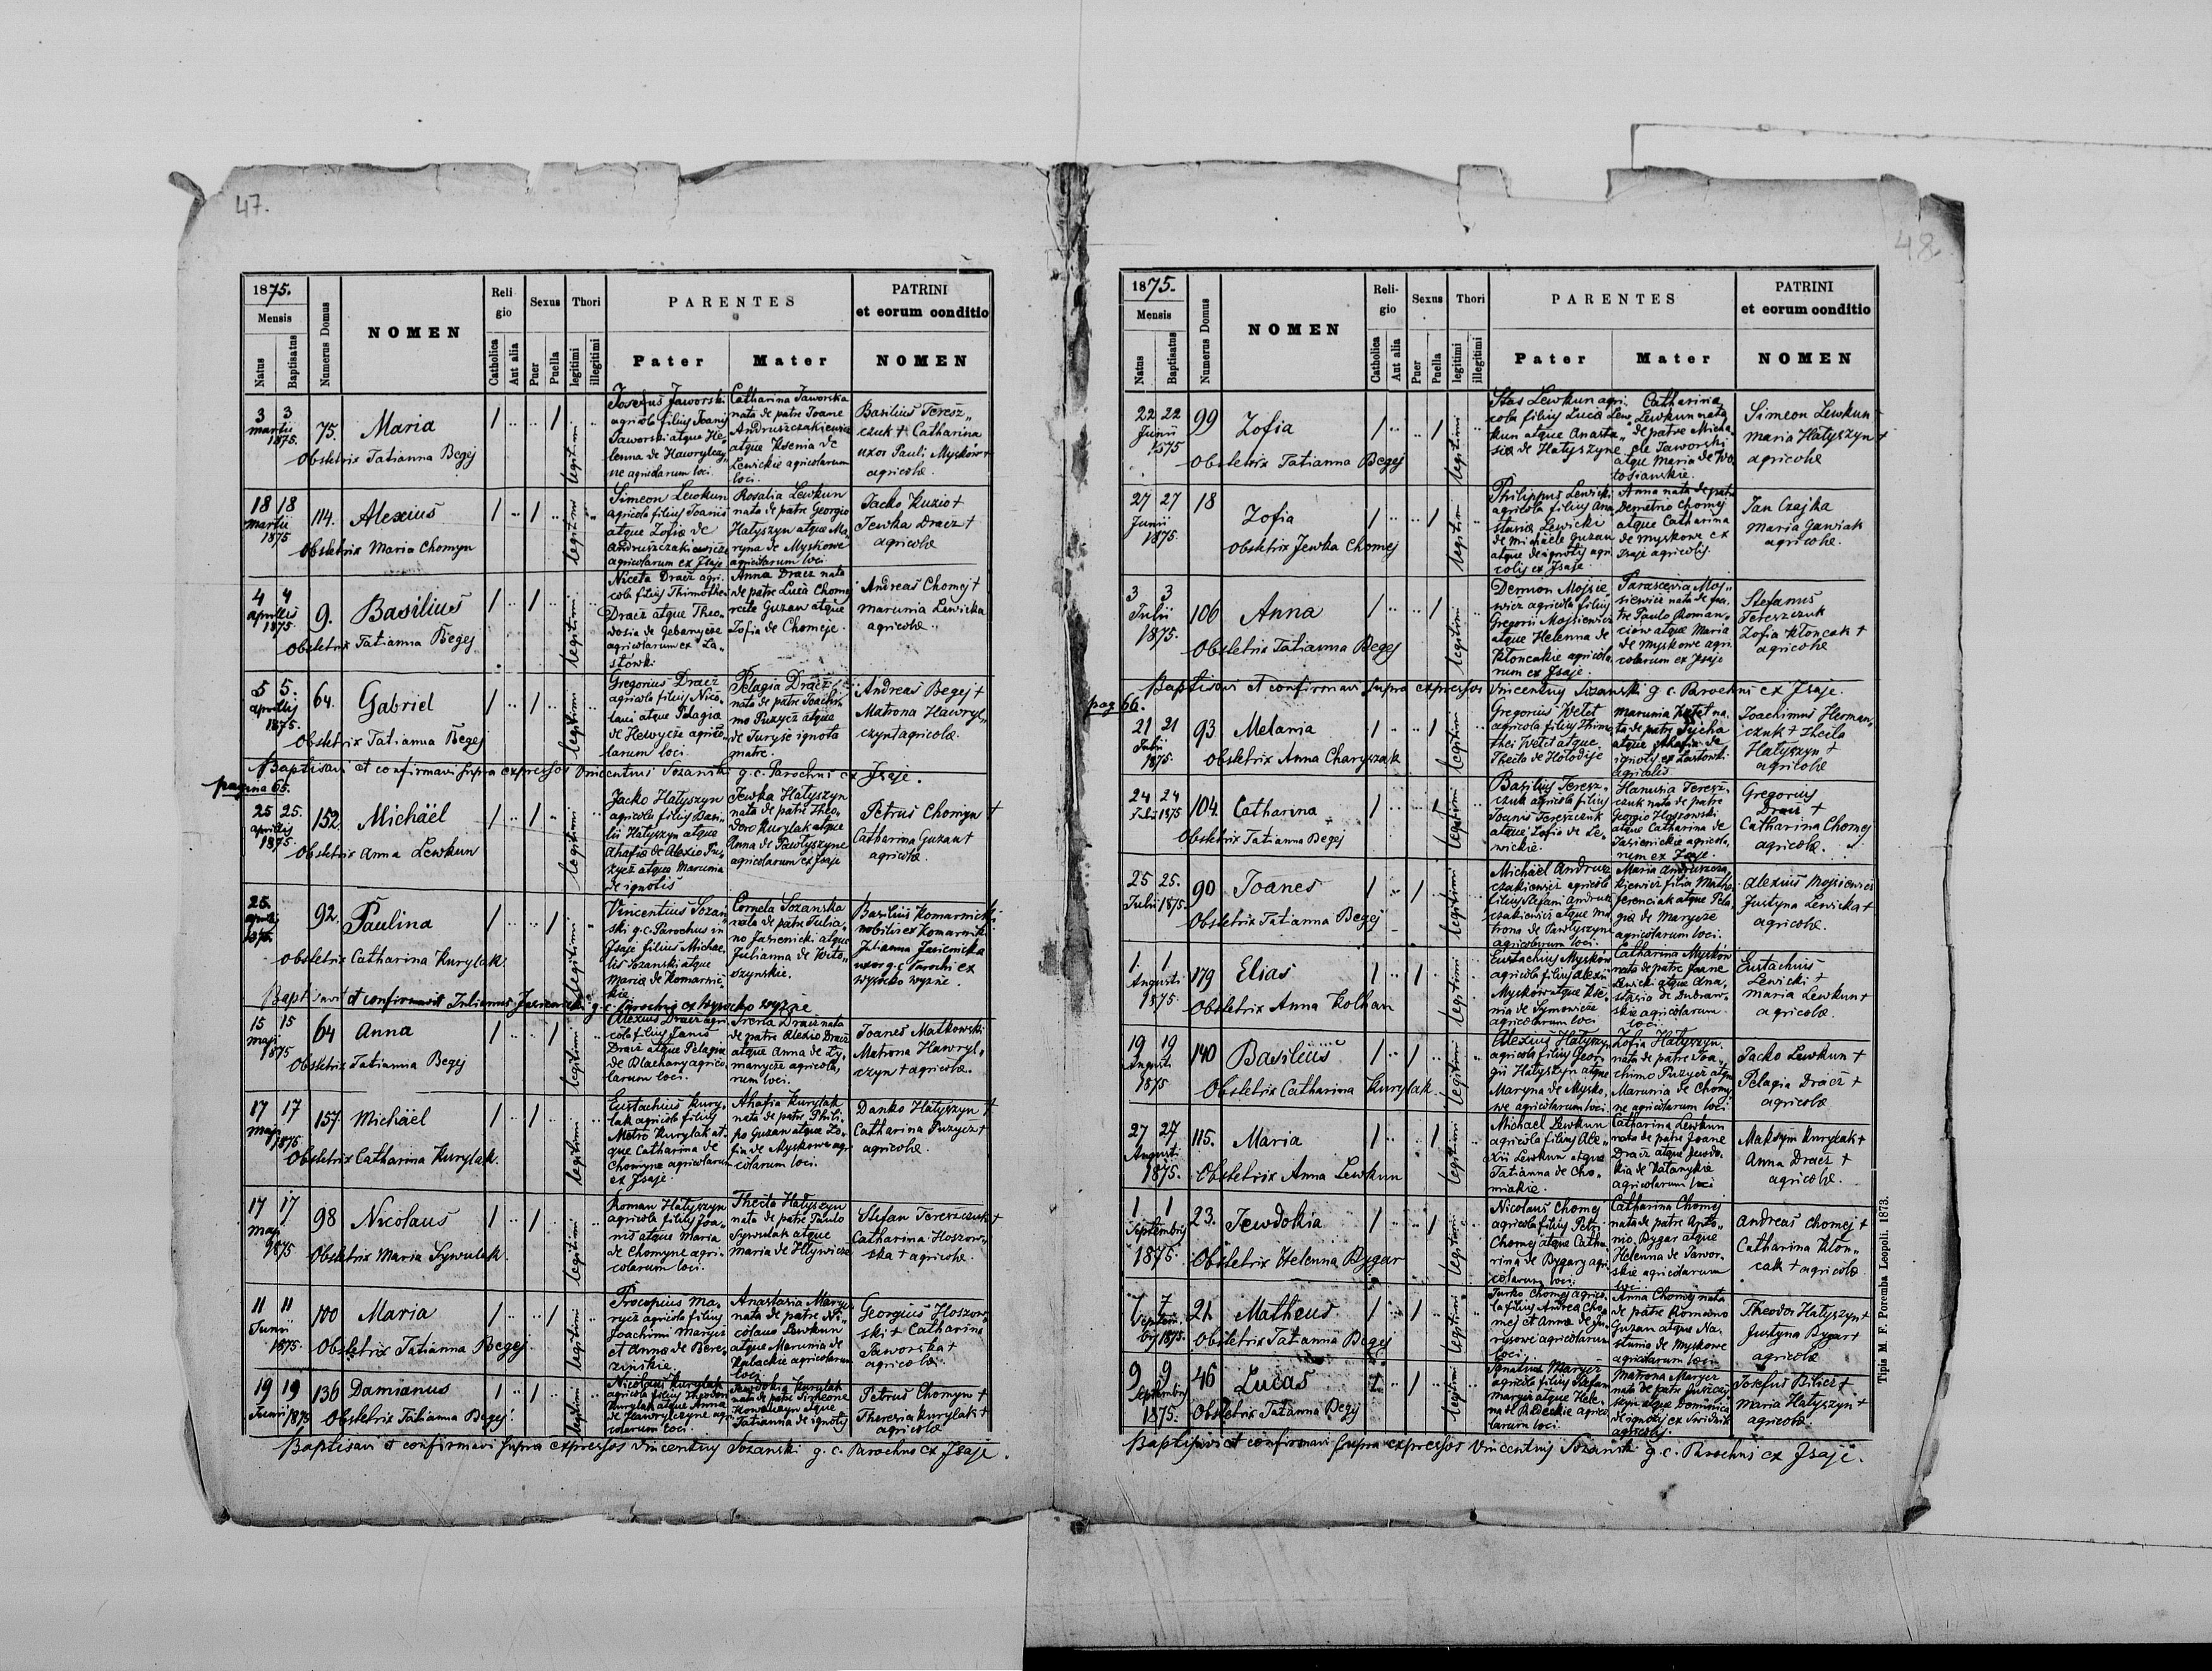 47.
1875.
Mensis
Natus
Baptisatus
Numerus Domus
NOMEN
Religio
Catholica
Aut alia
Sexus
Puer
Puella
Thori
legitimi
illegitimi
PARENTES
Pater
Mater
PATRINI
et eorum conditio
NOMEN
3 3
martii
1875.
75.
Maria
Obstetrix Tatianna Begej
legitimi
Josefus Jaworski
agricola filius Joanis
Jaworski atque He-
lenna de Hawrylczy-
ne agricolarum loci.
Catharina Jaworska
nata de patre Joane
Andruszczakiewicz
atque Ksenia de
Lewickie agricolarum
loci.
Basilius Teresz„
czuk + Catharina
uxor Pauli Myśków +
agricolae.
18 18
martii
1875
114.
Alexius
Obstetrix Maria Chomyn
legitimi
Simeon Lewkun
agricola filius Joanis
atque Zofia de
Andruszczakiewicze
agricolarum ex Jsaje
Rosalia Lewkun
nata de patre Georgio
Hatyszyn atque Ma„
ryna de Myskowe
agricolarum loci
Jacko Kuzio +
Jewka Dracz +
agricolae
4 4
aprilis
1875.
9.
Basilius
Obstetrix Tatianna Begej
legitimi
Niceta Dracz agri-
cola filius Thimothei
Dracz atque Theo„
dosia de
agricolarum ex La„
stówki
Anna Dracz nata
de patre Luca Chomej
recte Guzan atque
Zofia de Chomeje.
Andreas Chomej +
marunia Lewicka
agricolae.
5 5.
aprilis
1875.
64.
Gabriel
Obstetrix Tatianna Begej
legitimi
Gregorius Dracz
agricola filius Nico„
lai atque Pelagia
de Hewycze agrico„
larum loci.
Pelagia Dracz
nata de patre Joachi„
mo Puzycz atque
de Juryje ignota
matre.
Andreas Begej +
Matrona Hawryl„
czyn + agricolae.
Baptisavi et confirmavi supra expressos Vincentius Sozanski g. c. Parochus ex Jsaje.
pagina 65.
25 25.
aprilis
1875.
152.
Michäel
Obstetrix Anna Lewkun
legitimi
Jacko Hatyszyn
agricola filius Basi„
lii Hatyszyn atque
Ahafia de Alexio Pu„
zycz atque Marunia
de ignotis
Jewka Hatyszyn
nata de patre Theo„
doro Kurylak atque
Anna de Pawlyszyne
agricolarum ex Jsaje
Petrus Chomyn +
Catharina Guzan +
agricolae.
25.
aprilis
1875.
92.
Paulina
Obstetrix Catharina Kurylak.
legitimi
Vincentius Sozan„
ski g.c. Parochus in
Jsaje filius Michae„
lis Sozanski atque
Maria de Komarnic„
kie.
Cornela Sozanska
nata de patre Julia„
no Jasienicki atque
Julianna de Wito„
szynskie.
Basilius Komarnicki
nobilis ex Komarnik
Julianna Jasienicka
uxor g.c. Parochi ex
wysocko wyzne.
Baptisavit et confirmavit Julianus Jasienicki g. c. Parochus ex wysocko wyzne
15 15
maji
1875
64
Anna
Obstetrix Tatianna Begej
legitimi
Alexius Dracz agri„
cola filius Janis
Dracz atque Pelagia
de Blachary agrico„
larum loci.
Irena Dracz nata
de patre Alexio Dracz
atque Anna de Ty„
manycze agricola„
rum loci.
Joanes Matkowski
Matrona Hawryl„
czyn + agricolae.
17 17
maji
1875
157.
Michäel
Obstetrix Catharina Kurylak.
legitimi
Eustachius Kury„
lak agricola filius
Metro Kurylak at„
que Catharina de
Chomyne agricolarum
ex Jsaje
Ahafia Kurylak
nata de patre Phili„
po Guzan atque Zo„
fia de Myskowe agri
colarum loci.
Danko Hatyszyn +
Catharina Puzycz +
agricolae.
17 17
maji
1875
98
Nicolaus
Obstetrix Maria Sywulak.
legitimi
Roman Hatyszyn
agricola filius Joa„
nis atque Maria
de Chomyne agri-
colarum loci.
Thecla Hatyszyn
nata de patre Paulo
Sywulak atque
Maria de Hlywicze
Stefan Tereszczuk +
Catharina Hoszow„
ska + agricolae.
11 11
Junii
1875.
100
Maria
Obstetrix Tatianna Begej.
legitimi
Procopius Ma„
rycz agricola filius
Joachimi Marycz
et Anna de Bere„
zynskie.
Anastasia Marycz
nata de patre Ni„
colaus Lewkun
atque Marunia de
agricolarum
loci.
Georgius Hoszow„
ski + Catharina
Jaworska +
agricolae.
19 19
Junii 1875
136
Damianus
Obstetrix Tatianna Begej.
legitimi
Nicolaus Kurylak
agricola filius Theodori
Kurylak atque Anna
de Hawrylczyne agri
colarum loci.
Jewdokia Kurylak
nata de patre Simeone
Kowalczyn atque
Tatianna de ignotis
Petrus Chomyn +
Theresia Kurylak +
agricolae
Baptisavi et confirmavi supra expressos Vincentius Sozanski g. c. Parochus ex Jsaje.
48
1875.
Mensis
Natus
Baptisatus
Numerus Domus
NOMEN
Religio
Catholica
Aut alia
Sexus
Puer
Puella
Thori
legitimi
illegitimi
PARENTES
Pater
Mater
PATRINI
et eorum conditio
NOMEN
22 22
Junii
1875
99
Zofia
Obstetrix Tatianna Begej
legitimi
Stas Lewkun agri„
cola filius Luca Lew„
kun atque Anasta„
sia de Hatyszyne
Catharina
Lewkun nata
de patre Micha„
ele Jaworski
atque Maria de Wo„
tosianskie.
Simeon Lewkun +
Maria Hatyszyn +
agricolae
27 27
Junii
1875.
18
Zofia
Obstetrix Jewka Chomej
legitimi
Philippus Lewicki
agricola filius Ana„
stasia Lewicki
de Michäele Guzan
atque de ignotis agri
colis ex Jsaje.
Anna nata de patre
Demetrio Chomej
atque Catharina
de Myskowe ex
Jsaje agricolis.
Jan Czajka
Maria Gawiak
agricolae.
3 3
Julii
1875.
106
Anna
Obstetrix Tatianna Begej
legitimi
Demion Mojsie„
wicz agricola filius
Gregorii Mojsiewicz
atque Helenna de
Kłoncakie agricola„
rum ex Jsaje
Parascevia Moj„
siewicz nata de pa„
tre Paulo Roman„
ciow atque Maria
de Myskowe agri„
colarum ex Jsaje
Stefanus
Tereszczuk
Zofia Kłoncak +
agricolae
Baptisavi et confirmavi supra expressos Vincentius Sozanski g. c. Parochus ex Jsaje.
pag 66.
21 21
Julii
1875
93
Melania
Obstetrix Anna Charyszak
legitimi
Gregorius Wetet
agricola filius Thimo„
thei Wetet atque
Thecla de Hołodyje
Marunia Wetet na„
ta de patre Sycha
atque Ahafia de
ignotis ex Lastowki
agricolis.
Joachimus Herman„
czuk + Thecla
Hatyszyn +
agricolae
24 24
Julii 1875
104.
Catharina
Obstetrix Tatianna Begej
legitimi
Basilius Teresz„
czuk agricola filius
Joanis Tereszczuk
atque Zofia de Le„
wickie.
Hanusia Teresz„
czuk nata de patre
Georgio Hoszowski
atque Catharina de
Jasienickie agricola„
rum ex Jsaje.
Gregorius
Dracz +
Catharina Chomej
agricolae.
25 25.
Julii 1875.
90
Joanes
Obstetrix Tatianna Begej
legitimi
Michäel Andrusz„
czakiewicz agricola
filius Stefani Andrusz
czakiewicz atque Ma
trona de Pawlyszyne
agricolarum loci.
Maria Andruszcza„
kiewicz filia Mathe
ferenciak atque Pela„
gia de Marycze
agricolarum loci.
Alexius Mojsiewicz
Justyna Lewicka +
agricolae.
1 1
Augusti
1875.
179
Elias
Obstetrix Anna Kolhan
legitimi
Eustachius Myśków
agricola filius Alexii
Myśków atque Kse„
nia de Symowicze
agricolarum loci
Catharina Myśków
nata de patre Joane
Lewicki atque Ana„
stasia de Dubraw„
skie agricolarum
loci.
Eustachius
Lewicki +
Maria Lewkun +
agricolae.
19 19
Augusti
1875
140
Basilius
Obstetrix Catharina Kurylak
legitimi
Alexius Hatyszyn
agricola filius Geor„
gii Hatyszyn atque
Maryna de Mysko„
we agricolarum loci.
Zofia Hatyszyn
nata de patre Joa„
chimo Puzycz atque
Marunia de Chomy„
ne agricolarum loci
Jacko Lewkun +
Pelagia Dracz +
agricolae
27 27
Augusti
1875.
115.
Maria
Obstetrix Anna Lewkun
legitimi
Michael Lewkun
agricola filius Ale„
xii Lewkun atque
Tatianna de Cho„
miakie.
Catharina Lewkun
nata de patre Joane
Dracz atque Jewdo„
kia de Watanykie
agricolarum loci
Maksym Kurylak +
Anna Dracz +
agricolae.
1 1
Septembris
1875.
23.
Jewdokia
Obstetrix Helenna Bygar
legitimi
Nicolaus Chomej
agricola filius Petri
Chomej atque Catha„
rina de Bygary agri
colarum loci.
Catharina Chomej
nata de patre Anto„
nio Bygar atque
Helenna de Jawor„
skie agricolarum
loci
Andreas Chomej +
Catharina Kłon„
cak + agricolae
7 7
Septem
bris 1875.
21.
Matheus
Obstetrix Tatianna Begej
legitimi
Jurko Chomej agrico„
la filius Andrea Cho„
mej et Anna de Ju„
rysowe agricolarum
loci.
Anna Chomej nata
de patre Romano
Guzan atque Na„
stunia de Myskowe
agricolarum loci
Theodor Hatyszyn +
Justyna Bygar +
agricolae
9 9
Septembris
1875.
46
Lucas
Obstetrix Tatianna Begej
legitimi
Ignatius Marycz
agricola filius Stefan
Marycz atque Hele„
na de agrico
larum loci.
Matrona Marycz
nata de patre
atque Dominica
de ignotis ex
agricolis.
Josefus Bilicz +
Maria Hatyszyn +
agricolae.
Baptisavi et confirmavi supra expressos Vincentius Sozanski g. c. Parochus ex Jsaje.
Tipis M. F. Poremba Leopoli. 1873.